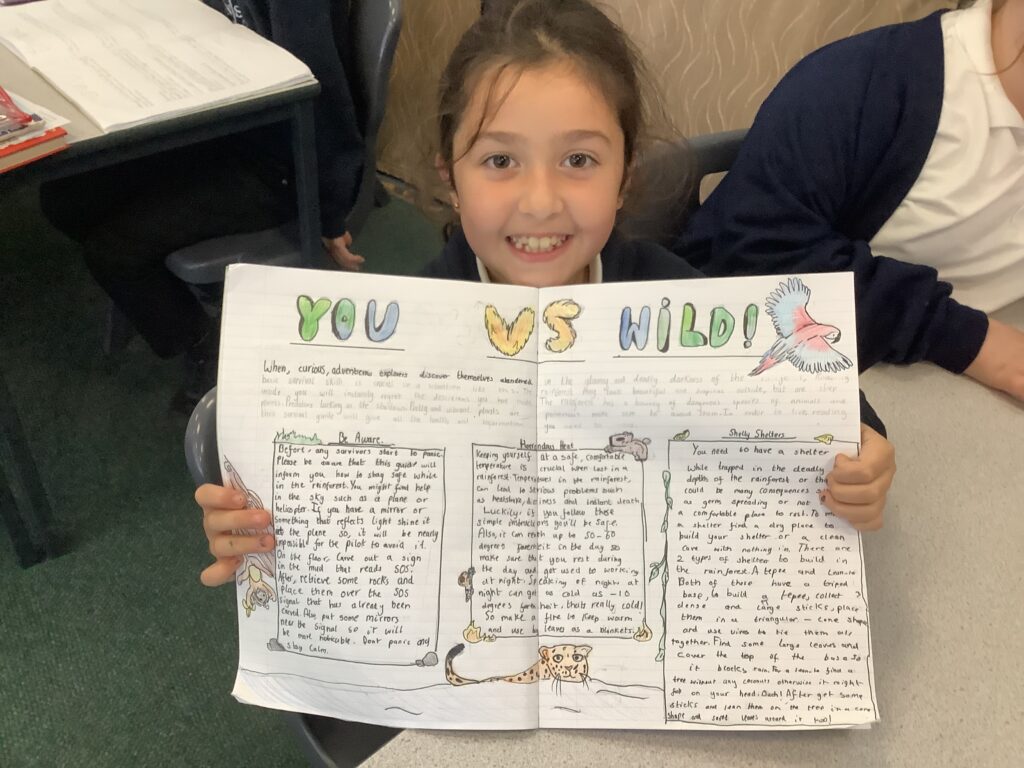 YOU VS WILD!
When, curious, adventerous explorers discover themselves abandoned in the gloomy and deadly darkness of the
basic survival skill is crucial in a situation like this. The rainforest. They have beautiful and
inside you will instantly regret the decisions you have made. The rainforest has a variety of dangerous species of animals and
plants. Predators lurking in the shadows. Pretty and vibrant plants are poisonous
this survival guide will give all the health and information you need to
Be Aware.
Before any survivors start to panic
Please be aware that this guide will
inform you how to stay safe while
in the rainforest. You might find help
in the sky such as a plane or
helicopter. If you have a mirror or
something that reflects light shine it
at the plane so, it will be nearly
impossible for the pilot to avoid it.
On the floor, carve out a sign
in the mud that reads SOS.
After, retrieve some rocks and
place them over the SOS
signal that has already been
carved. Also put some mirrors
near the signal so it will
be more noticable. Dont panic and
stay calm.
Horrendous Heat
Keeping yourself at a safe, comfortable
temperature is crucial when lost in a
rainforest. Temperatures in the rainforest,
can lead to serious problems such
as heatstroke, diziness and instant death.
Luckily, if you follow these
simple instructions you'll be safe.
Also, it can reach up to 50-60
degrees in the day so
make sure that you rest during
the day and get used to working
at night. Speaking of night at
night can get as cold as -10
degrees thats really cold!
So make a fire to keep warm
and use big leaves as a blankets.
Shelly Shelters
You need to have a shelter
While trapped in the deadly
depths of the rainforest or there
could be many consequences such
as germ spreading or not
a comfortable place to rest. To make
a shelter find a dry place to
build your shelter or a clean
cave with nothing in. There are
2 types of shelter to build in
the rainforest. A tepee and lean-to
Both of these have a tripod
base, to build a tepee, collect 3
dense and large sticks, place
them in a triangular - cone shape
and use vines to tie them all
together. Find some large leaves and
cover the top of the base so
it blocks rain. For a lean-to find a
tree without any coconuts otherwise it might
fall on your head. Ouch! After get some
sticks and lean them on the tree in a cone
shape and some leaves around it too!